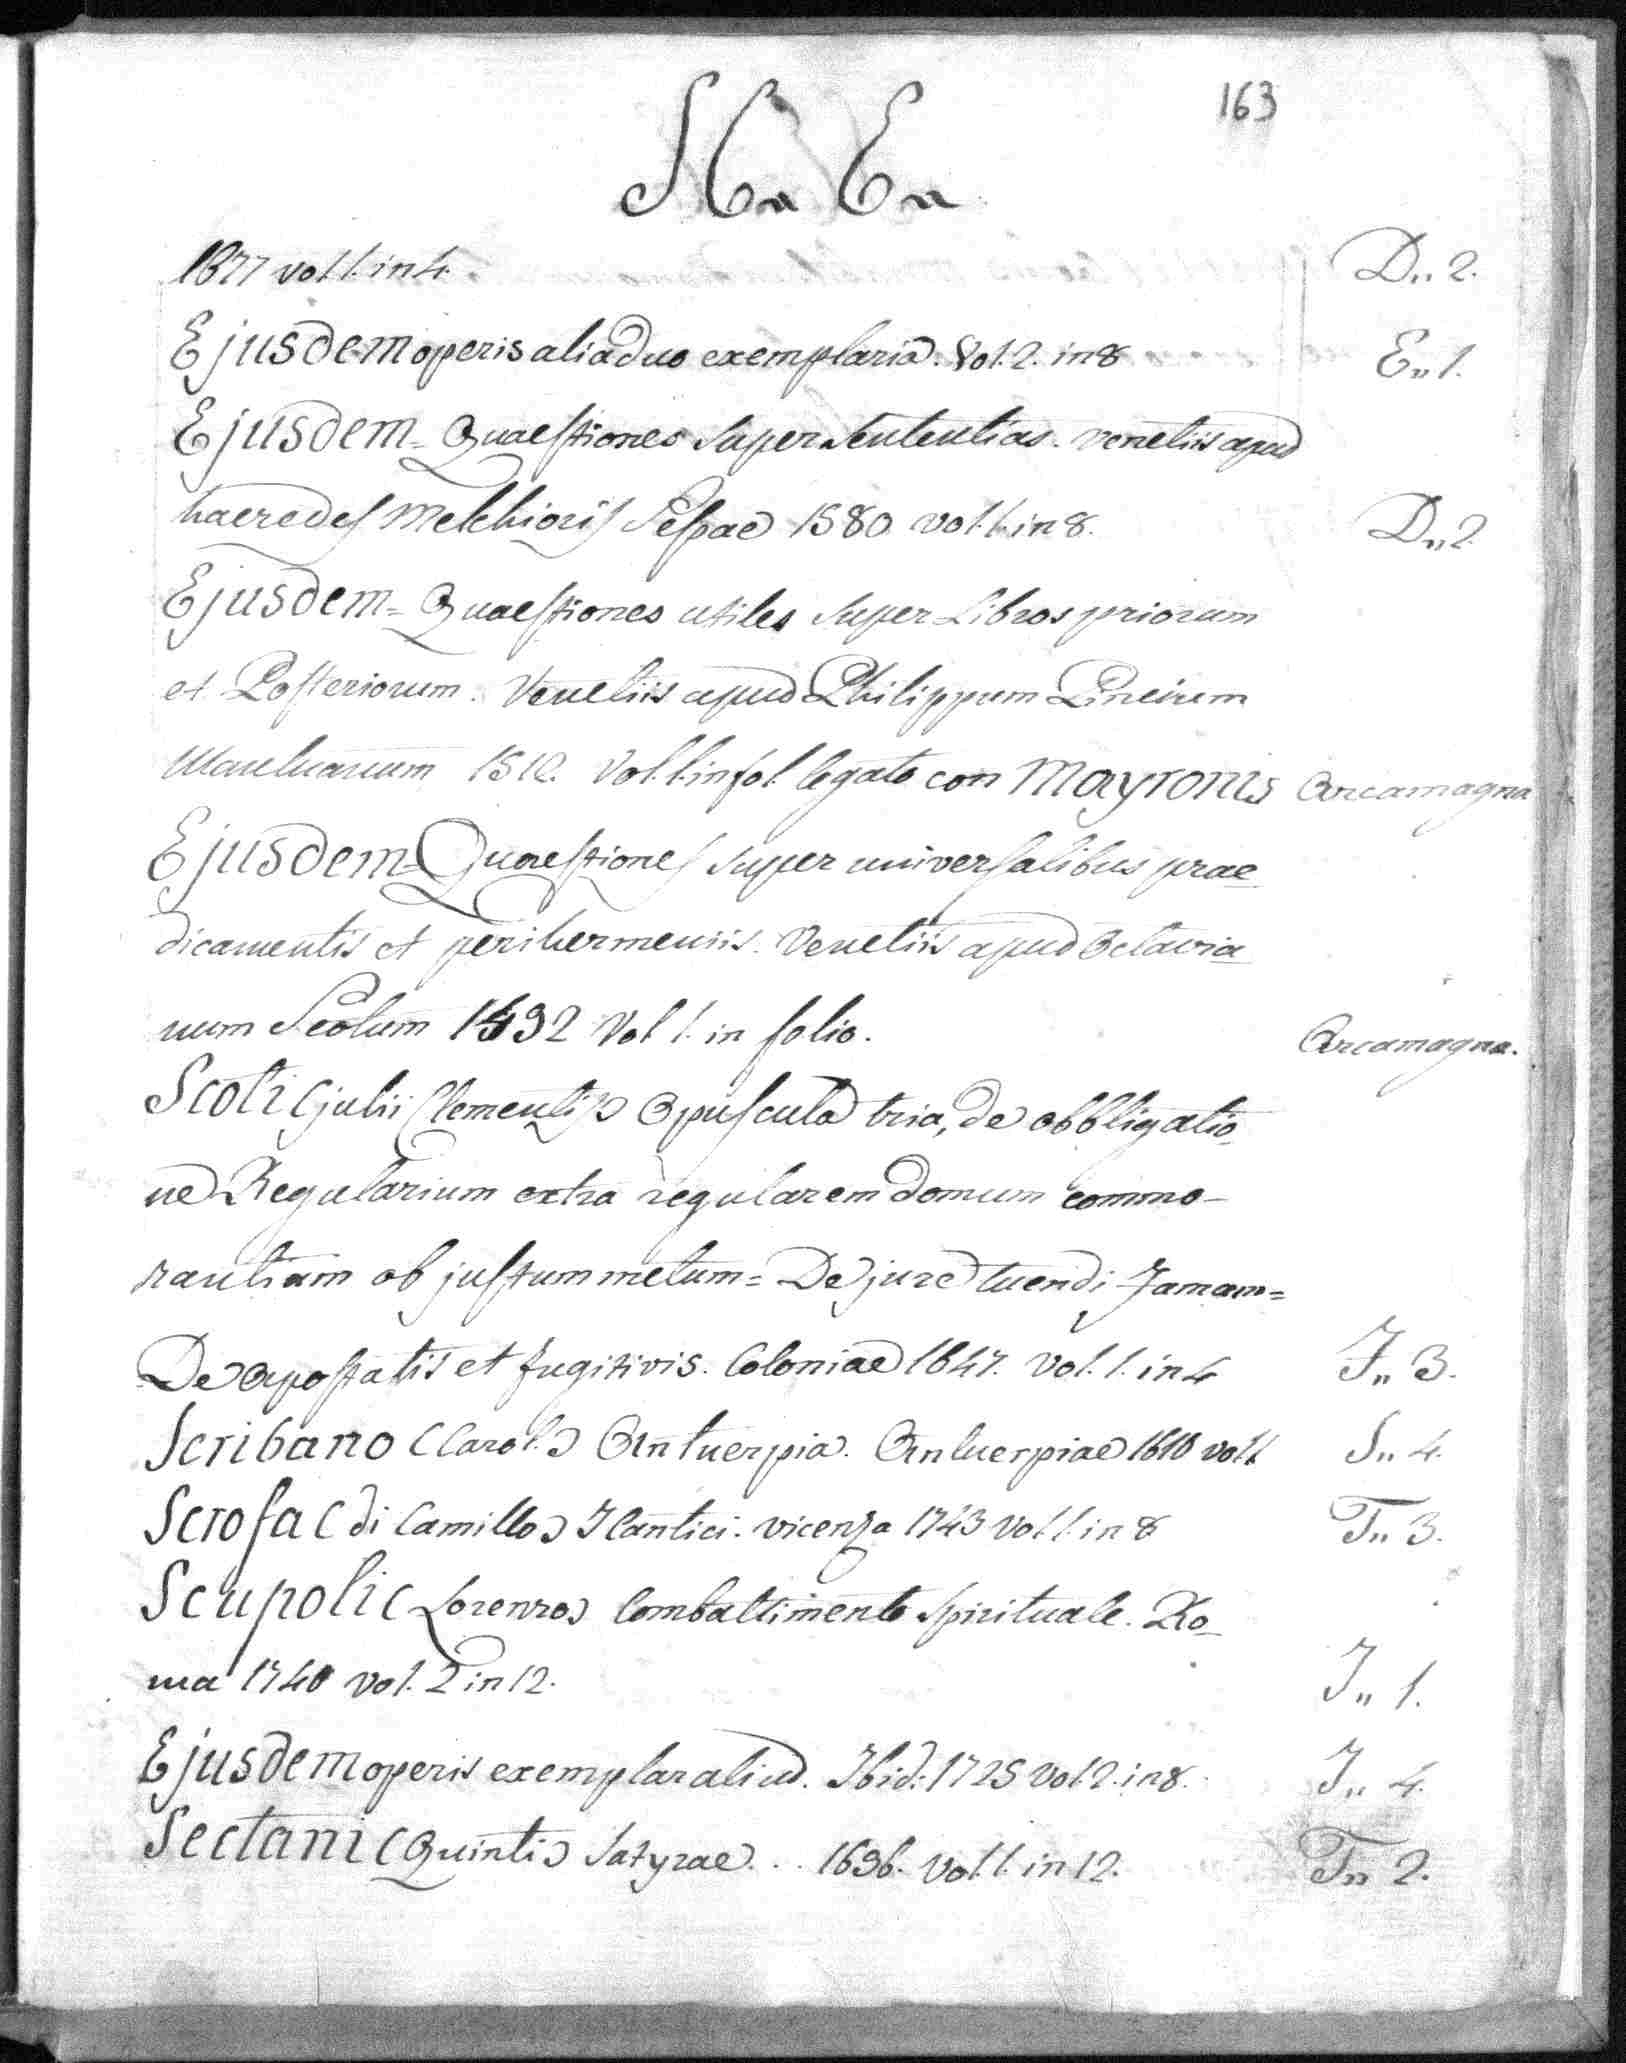 163
S C„ E„
1677 vol 1. in 4. D„ 2.
Ejusdem operis alia duo exemplaria. Vol. 2. in 8 E„ 1.
Ejusdem = Quaestiones super Sententias. venetiis apud
haeredes Melchioris Sessae 1580 vol. 1. in 8. D„ 2.
Ejusdem = Quaestiones utiles super Libros priorum
et Posteriorum. Venetiis apud Philippum Pincium
Mantuanum 1512. Vol. 1. in fol. legato con Mayronis Arcamagna
Ejusdem = Quaestiones super universalibus prae
dicamentis et perihermeniis. Venetiis apud Octavia
num Scotum 1492 Vol 1. in folio. Arcamagna.
Scoti (julii Clementis) Opuscula tria, de obbligatio
ne Regularium extra regularem domum commo-
rantiam ob justum metum = De jure tuendi famam =
De Apostatis et fugitivis. Coloniae 1647. Vol. 1. in 4 I„ 3.
Scribano (Carol.) Antuerpia. Antuerpiae 1610 vol 1 S„ 4.
Scrofa (di Camillo) I Cantici. vicenza 1743 vol 1. in 8 T„ 3.
Scupoli (Lorenzo) Combattimento Spirituale. Ro_
ma 1740 vol. 2 in 12. I„ 1.
Ejusdem operis exemplar aliud. Ibid: 1725 Vol. 2. in 8. I„ 4.
Sectani (Quinti) Satyrae. . . 1696. Vol. 1. in 12. T„ 2.